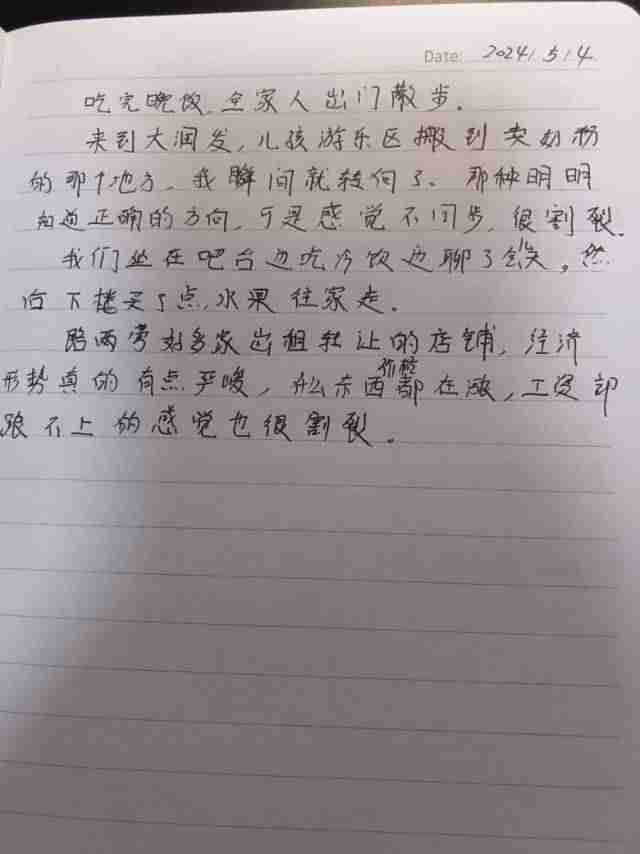 Date: 2024.5.4.
吃完晚饭,全家人出门散步.
来到大润发,儿孩游乐区搬到卖奶粉
的那个地方,我瞬间就转向了。那种明明
知道正确的方向,于是感觉不同步,很割裂.
我们坐在吧台边吃冷饮边聊了会天。然
后下楼买了点水果往家走.
路两旁好多家出租转让的店铺,经济
形势真的有点严峻,什么东西价格都在涨,工资却
跟不上的感觉也很割裂。